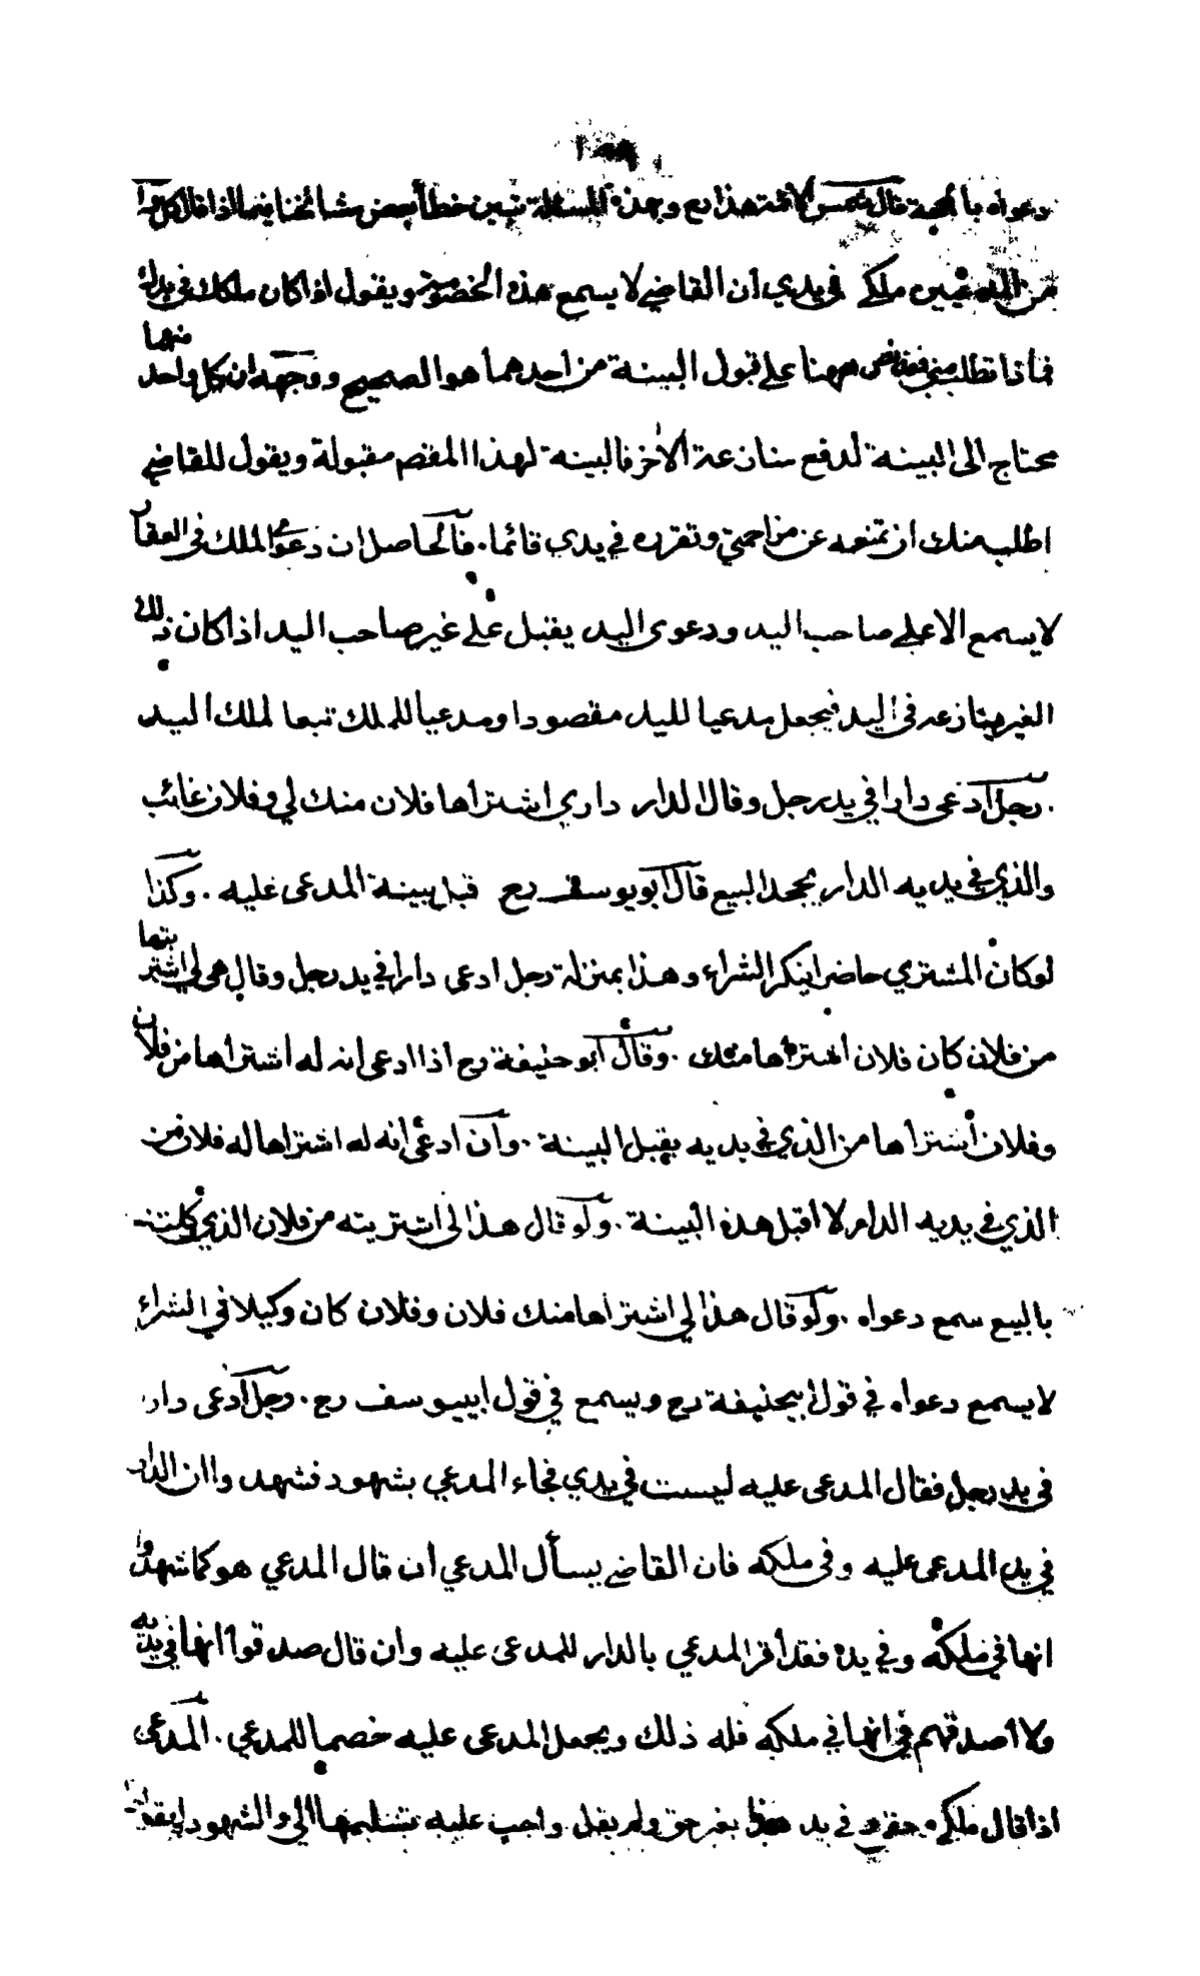 دعواه بالحجة قال شمس الائمة هذا رح وبهذه المسئلة تبين خطأ بعض مشائخنا فيما اذا قال كل واحد
من المدعيين ملكي في يدي ان القاضي لا يسمع هذه الخصومة ويقول اذا كان ملكك في يدك
فماذا تطلب مني فقد نص ههنا على قبول البينة من احدهما هو الصحيح ووجهه ان كل واحد منهما
محتاج الى البينة لدفع منازعة الاخر فالبينة لهذا المقصم مقبولة ويقول للقاضي
اطلب منك ان تمنعه عن مزاحمتي وتقرره في يدي قائما. فالحاصل ان دعوى الملك في العقار
لا يسمع الا على صاحب اليد ودعوى اليد يقبل على غير صاحب اليد اذا كان ذلك
الغير ينازعه في اليد فيجعل مدعيا لليد مقصودا ومدعيا للملك تبعا لملك اليد
. رجل ادعى دارا في يد رجل وقال الدار داري اشتراها فلان منك لي وفلان غائب
والذي في يديه الدار يجحد البيع قال ابو يوسف رح قبل بينة المدعى عليه . وكذا
لو كان المشتري حاضرا ينكر الشراء وهذا بمنزلة رجل ادعى دارا في يد رجل وقال هو لي اشتريتها
من فلان كان فلان اشتراها منك . وقال ابو حنيفة رح اذا ادعى انه له اشتراها من فلان
وفلان اشتراها من الذي في يديه يقبل البينة . وان ادعى انه له اشتراها له فلان من
الذي في يديه الدار لا اقبل هذه البينة . ولو قال هذا لي اشتريته من فلان الذي وكلته
بالبيع سمع دعواه . ولو قال هذا لي اشتراها منك فلان وفلان كان وكيلا في الشراء
لا يسمع دعواه في قول ابيحنيفة رح ويسمع في قول ابييوسف رح . رجل ادعى دار
في يد رجل فقال المدعى عليه ليست في يدي فجاء المدعي بشهود فشهدوا ان الدار
في يد المدعى عليه وفي ملكه فان القاضي يسأل المدعي ان قال المدعي هو كما شهدوا
انها في ملكه وفي يده فقد أقر المدعي بالدار للمدعى عليه وان قال صدقوا انها في يديه
ولا اصدقهم في انها في ملكه فله ذلك ويجعل المدعى عليه خصما للمدعي . المدعي
اذا قال ملكي حقي في يد هذا بغير حق ولم يقل واجب عليه تسليمها الي والشهود